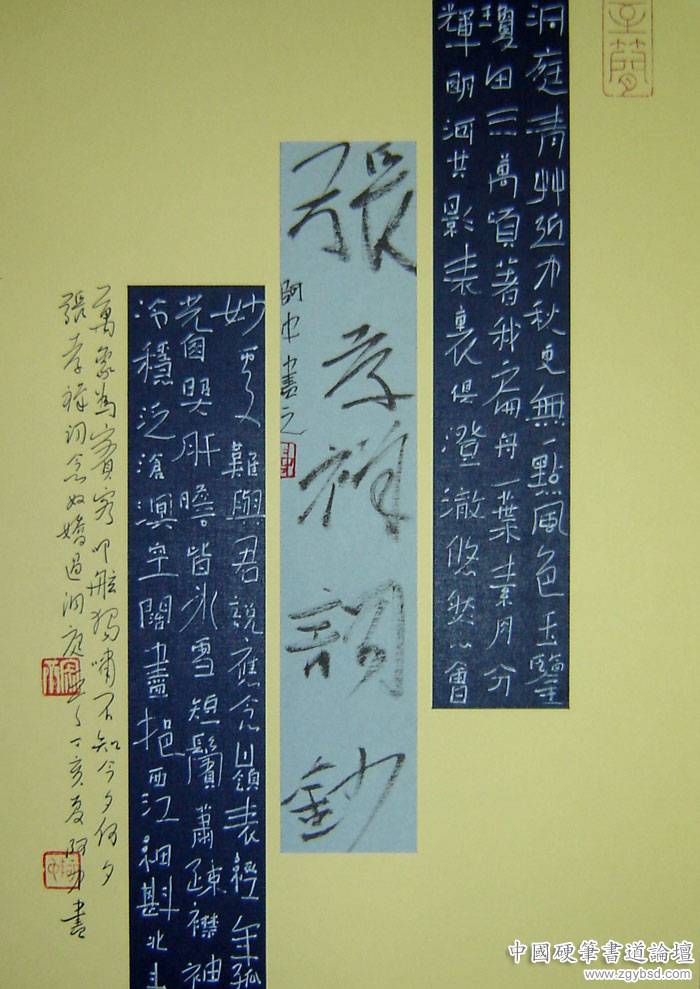 至簡
洞庭青艸近中秋更無一點風色玉鑒
瓊田三萬頃著我扁舟一葉素月分
輝明河共影表裏俱澄澈悠然心會
張孝祥詞鈔
阿中書之
妙處難與君說應念嶺表經年孤
光自照肝膽皆冰雪短鬢蕭疎襟袖
冷穩泛滄溟空闊盡挹西江細斟北斗
萬象為賓客叩舷獨嘯不知今夕何夕
張孝祥詞念奴嬌過洞庭 丁亥夏阿中書
中國硬筆書道論壇
www.zgybsd.com